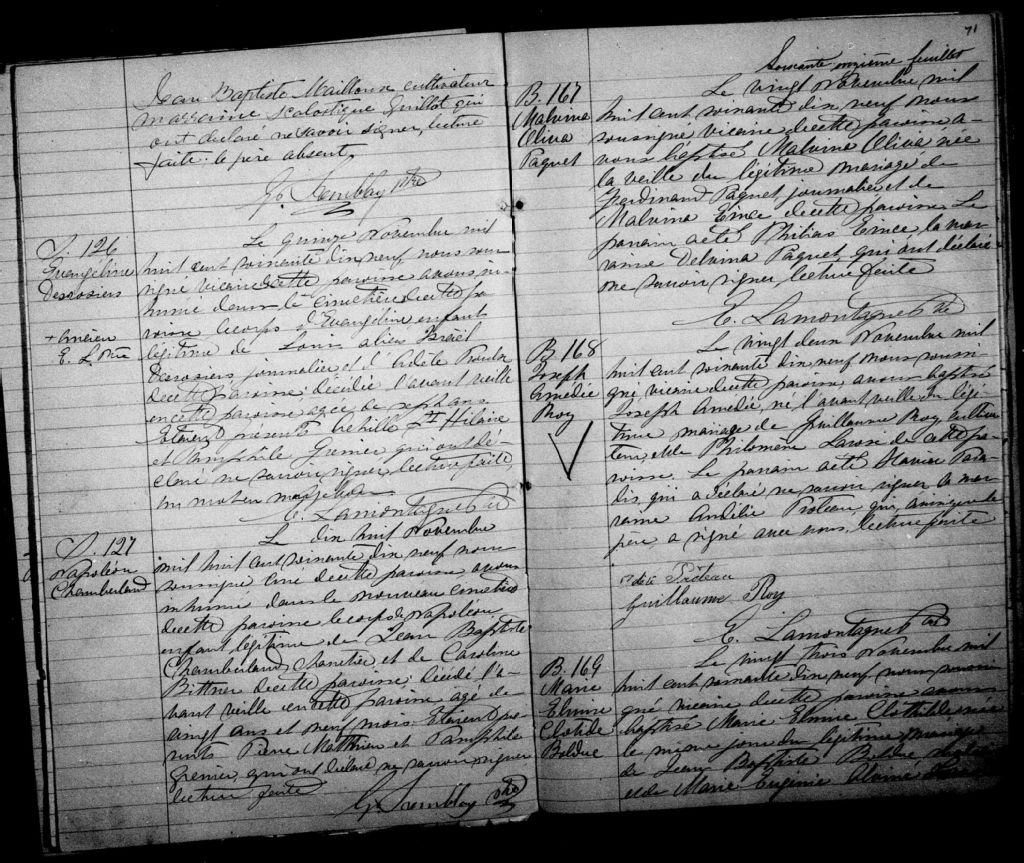 Jean Baptiste Mailloux cultivateur
marraine Scolastique Guillot qui
ont declaré ne savoir signer, lecture
faite. le père absent,
G. Tremblay Ptre
S. 126
Evangeline
Desrosiers
+ ancien
E. L. Ptre
Le quinze Novembre mil
huit cent soixante dix neuf nous sous
signé vicaire decette paroisse avons in-
humé dans le cimetière decette pa
roisse le corps d'Evangeline enfant
légitime de Louis alias Israël
Desrosiers journalier et d'Adele Proulx
decette paroisse décédée l'avant veille
en cette paroisse agée de sept ans
Etaient présents Achille St Hilaire
et Pamphile Grenier qui ont dé-
claré ne savoir signer, lecture faite,
un mot en marge bon
E. Lamontagne Ptre
S. 127
Napoléon
Chamberland
Le dix huit Novembre
mil huit cent soixante dix neuf nous
soussigné Curé decette paroisse avons
inhumé dans le nouveau cimetière
decette paroisse le corps de Napoléon
enfant légitime de Jean Baptiste
Chamberland, et de Caroline
Bittner decette paroisse; décédé l'a-
vant veille en cette paroisse agé de
vingt ans et neuf mois. Etaient pré-
sents Pierre Matthieu et Pamphile
Grenier, qui ont declaré ne savoir signer
lecture faite
G. Tremblay Ptre
71
Soixante onzième feuillet
B. 167
Malvina
Olivia
Paquet
Le vingt Novembre mil
huit cent soixante dix neuf nous
soussigné vicaire decette paroisse a-
vons baptisé Malvina Olivia née
la veille du légitime mariage de
Ferdinand Paquet journalier et de
Malvina Emce decette paroisse. Le
parrain a été Philias Emce la mar
raine Delvina Paquet qui ont déclaré
ne savoir signer, lecture faite
E. Lamontagne Ptre
B. 168
Joseph
Amédée
Roy
Le vingt deux Novembre mil
huit cent soixante dix neuf nous soussi
gné vicaire decette paroisse avons baptisé
Joseph Amédée, né l'avant veille du légi
time mariage de Guillaume Roy, cultiva
teur, et de Philomène Larose de cette pa
roisse. Le parrain a été Xavier Para
dis qui a déclaré ne savoir signer la mar
raine Andélie Proteau qui, ainsi que le
père, a signé avec nous, lecture faite
Guillaume Roy
E. Lamontagne Ptre
B. 169
Marie
Elmire
Clotilde
Bolduc
Le vingt trois Novembre mil
huit cent soixante dix neuf nous soussi
gné vicaire decette paroisse avons
baptisé Marie Elmire Clothilde, née
le même jour du légitime mariage
de Jean Baptiste Bolduc
et de Marie Eugénie